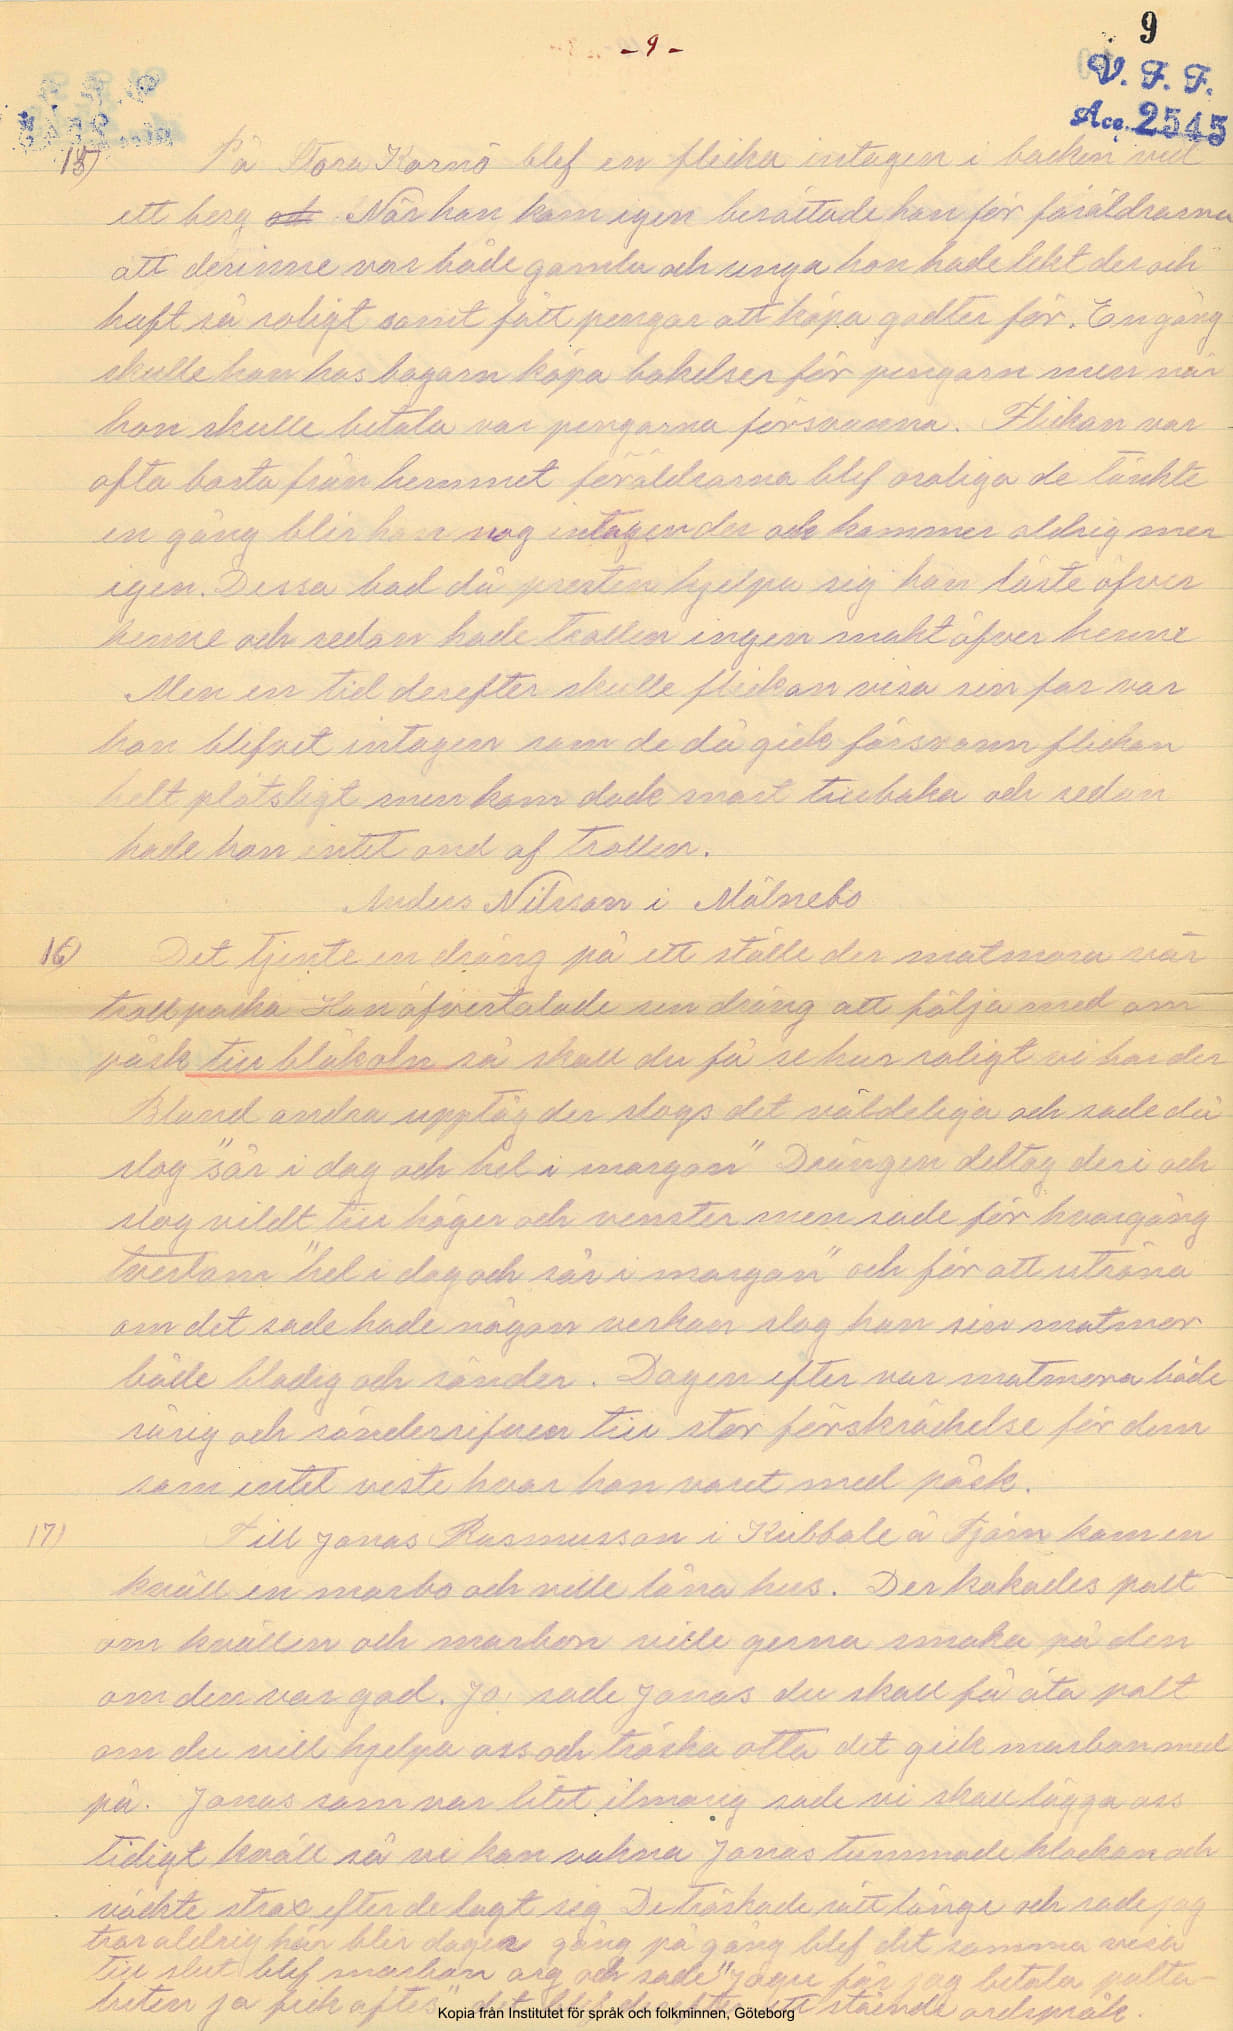 - 9 -
9
V. F. F.
Acc. 2545
15) På Tora Kornö blef en flicka intagen i backen vid
ett berg När hon kom igen berättade hon för föräldrarna
att derinne var både gamla och unga hon hade lekt der och
haft så roligt samt fått pengar att köpa godter för. En gång
skulle hon hos bagarn köpa bakelser för pengarn men när
hon skulle betala var pengarna försvunna. Flickan var
ofta borta från hemmet föräldrarna blef oroliga de tänkte
en gång blir hon nog intagen der och kommer aldrig mer
igen. Dessa bad då presten hjelpa sig han läste öfver
henne och sedan hade trollen ingen makt öfver henne
Men en tid derefter skulle flickan visa sin far var
hon blifvet intagen som de då gick försvann flickan
helt plötsligt men kom dock snart tillbaka och sedan
hade hon intet ond af trollen.
Anders Nilsson i Mölnebo
16) Det tjente en dräng på ett ställe der matmora var
trollpacka Hon öfvertalade sen dräng att följa med om
påsk till blåkoln så skall du få se hur roligt vi har der
Bland andra upptåg der slogs det väldeliga och sade då
slog "sår i dag och hel i morgon" Drängen deltog deri och
slog vildt till höger och venster men sade för hvargång
tvertom "hel i dag och sår i morgon" och för att utröna
om det sade hade någon verkan slog han sin matmor
både blodig och sönder. Dagen efter var matmora både
sårig och sönderrifven till stor förskräckelse för dem
som intet viste hvar hon varet med påsk.
17) Till Jonas Rasmusson i Kubbale å Tjörn kom en
kväll en morbo och ville låna hus. Der kokades palt
om kvällen och morbon ville gerna smaka på den
om den var god. Jo! sade Jonas du skall få äta palt
om du vill hjelpa oss och tröska otta det gick morbon med
på. Jonas som var litet ilmarig sade vi skall lägga oss
tidigt kväll så vi kan vakna Jonas tummade klockan och
väckte strax efter de lagt sig De tröskade rätt länge och sade jag
tror aldrig här blir dager gång på gång blef det samma visa
till slut blef morbon arg och sade "Jagu får jag betala palta-
beten ja fick aftes" det blef derefter ett stående ordspråk.
Kopia från Institutet för språk och folkminnen, Göteborg